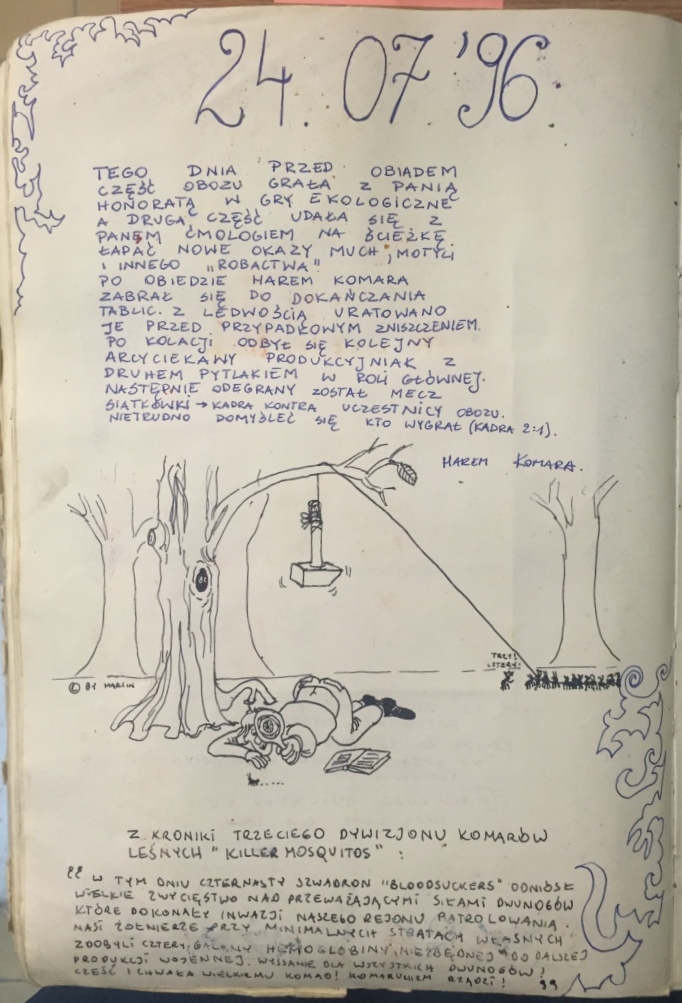 24. 07 '96
TEGO DNIA PRZED OBIADEM
CZĘŚĆ OBOZU GRAŁA Z PANIĄ
HONORATĄ W GRY EKOLOGICZNE
A DRUGA CZĘŚĆ UDAŁA SIĘ Z
PANEM ĆMOLOGIEM NA ŚCIEŻKĘ
ŁAPAĆ NOWE OKAZY MUCH, MOTYLI
I INNEGO „ROBACTWA"
PO OBIEDZIE HAREM KOMARA
ZABRAŁ SIĘ DO DOKAŃCZANIA
TABLIC. Z LEDWOŚCIĄ URATOWANO
JE PRZED PRZYPADKOWYM ZNISZCZENIEM.
PO KOLACJI ODBYŁ SIĘ KOLEJNY
ARCYCIEKAWY PRODUKCYJNIAK Z
DRUHEM PYTLAKIEM W ROLI GŁÓWNEJ.
NASTĘPNIE ODEGRANY ZOSTAŁ MECZ
SIATKÓWKI → KADRA KONTRA UCZESTNICY OBOZU.
NIETRUDNO DOMYŚLEĆ SIĘ KTO WYGRAŁ (KADRA 2:1).
HAREM KOMARA.
TRZY!
CZTERY!
© BY MARCIN
Z KRONIKI TRZECIEGO DYWIZJONU KOMARÓW
LEŚNYCH "KILLER MOSQUITOS" :
" W TYM DNIU CZTERNASTY SZWADRON "BLOODSUCKERS" ODNIÓSŁ
WIELKIE ZWYCIĘSTWO NAD PRZEWAŻAJĄCYMI SIŁAMI DWUNOGÓW
KTÓRE DOKONAŁY INWAZJI NASZEGO REJONU PATROLOWANIA.
NASI ŻOŁNIERZE PRZY MINIMALNYCH STRATACH WŁASNYCH
ZDOBYLI CZTERY GALONY HEMOGLOBINY NIEZBĘDNEJ DO DALSZEJ
PRODUKCJI WOJENNEJ. WYSSANIE DLA WSZYSTKICH DWUNOGÓW!
CZEŚĆ I CHWAŁA WIELKIEMU KOMAO! KOMARUNIZM RZĄDZI! "